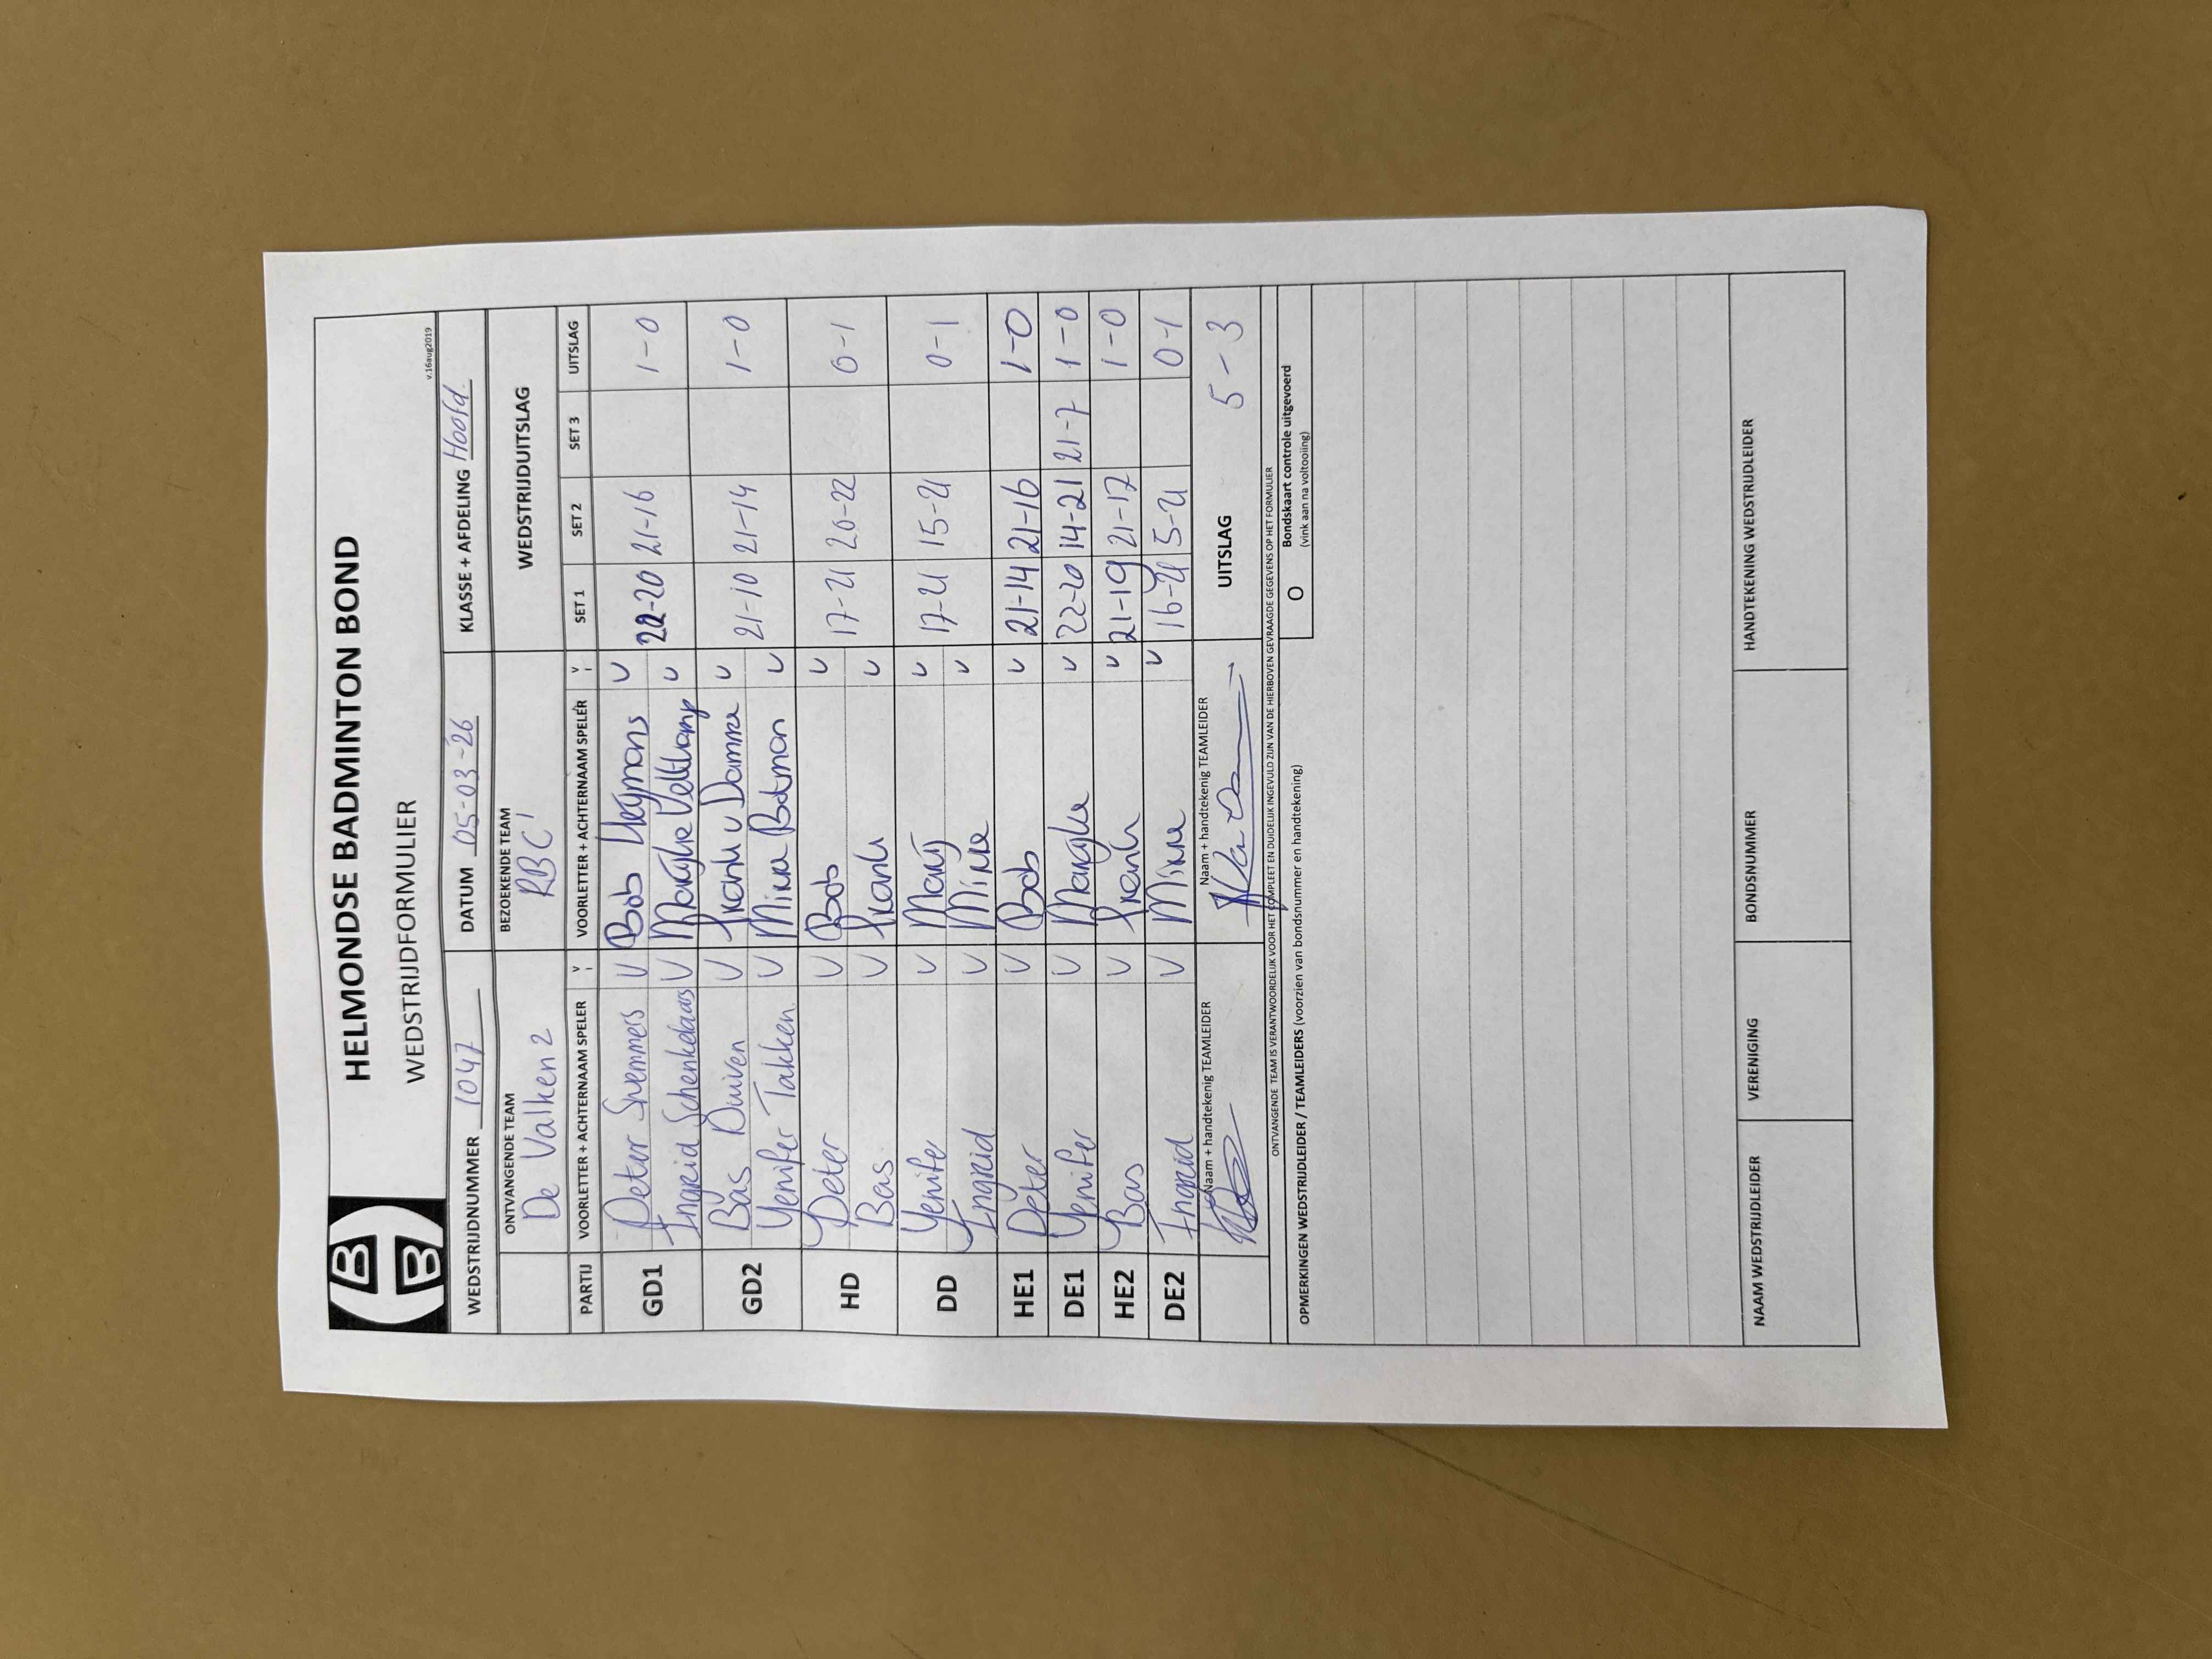 HELMONDSE BADMINTON BOND
WEDSTRIJDFORMULIER
v.16aug2019
WEDSTRIJDNUMMER 1047 DATUM 05-03-26 KLASSE + AFDELING Hoofd
ONTVANGENDE TEAM BEZOEKENDE TEAM WEDSTRIJDUITSLAG
De Valken 2 RBC 1
PARTIJ VOORLETTER + ACHTERNAAM SPELER V VOORLETTER + ACHTERNAAM SPELER V SET 1 SET 2 SET 3 UITSLAG
GD1 Peter V Bob V 22-20 21-16 1-0
Ingrid Schenkelaars V Marijke Veltkamp V
GD2 Bas Duiven V Frank v Damme V 21-10 21-14 1-0
Yenifer Takken V Minke V
HD Peter V Bob V 17-21 20-22 0-1
Bas V Frank V
DD Yenifer V Marij V 17-21 15-21 0-1
Ingrid V Minke V
HE1 Peter V Bob V 21-14 21-16 1-0
DE1 Yenifer V Marijke V 22-20 14-21 21-7 1-0
HE2 Bas V Frank V 21-19 21-17 1-0
DE2 Ingrid V Minke V 16-21 5-21 0-1
Naam + handtekenig TEAMLEIDER Naam + handtekenig TEAMLEIDER UITSLAG 5-3
ONTVANGENDE TEAM IS VERANTWOORDELIJK VOOR HET COMPLEET EN DUIDELIJK INGEVULD ZIJN VAN DE HIERBOVEN GEVRAAGDE GEGEVENS OP HET FORMULIER
OPMERKINGEN WEDSTRIJDLEIDER / TEAMLEIDERS (voorzien van bondsnummer en handtekening) O Bondskaart controle uitgevoerd
(vink aan na voltooiing)
NAAM WEDSTRIJDLEIDER VERENIGING BONDSNUMMER HANDTEKENING WEDSTRIJDLEIDER